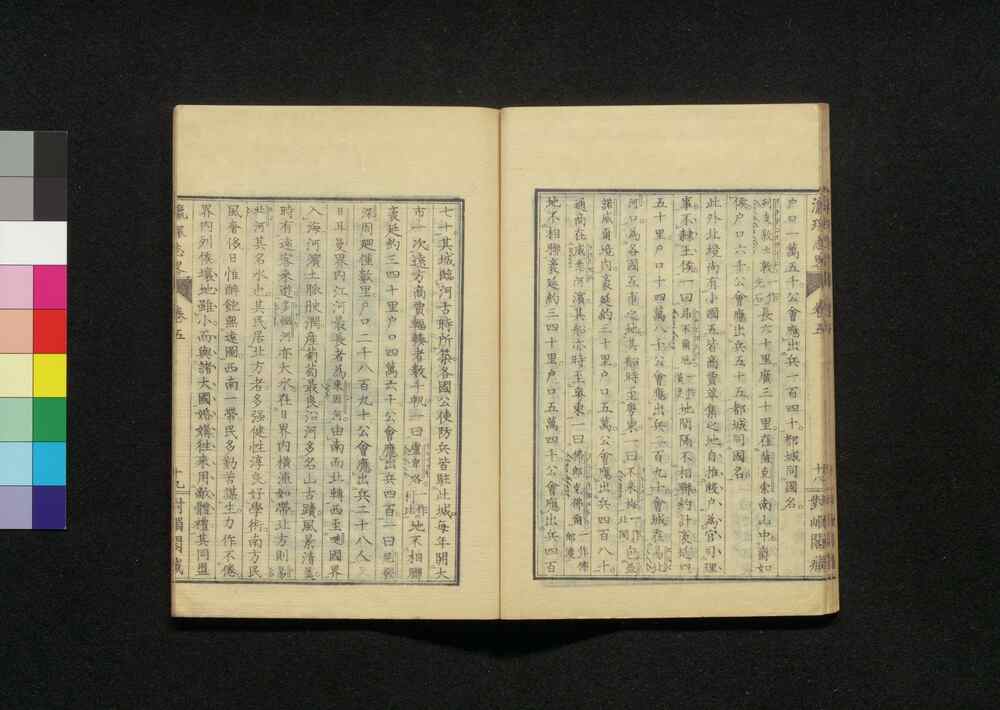 戶口一萬五千公會應出兵一百四十都城同國名
長六十里廣三十里在薩克索南山中爵如
侯戶口六千公會應出兵五十五都城同國名
此外北境尚有小國五皆商賈萃集之地自推賤戶為官司小理
事不隸王侯一曰
地閒隔不相聯約計袤延四
五十里戶口十四萬八千公會應出兵一千二百九十八會城在易北
河口為各國互市之地其船時至粵東一曰不來梅一作
境內袤延約三十里戶口五萬公會應出兵四百八十
通商在威悉河濱其船亦時至粵東一曰佛郎克佛爾一作佛
地不相聯袤延約三四十里戶口五萬四千公會應出兵四百
卷五
七十其城臨河古時所築各國公使防兵皆駐此城每年開大
市一次遠方商賈輻輳者數千帆一曰盧卑咯一作
地不相聯
袤延約三四十里戶口四萬六千公會應出兵四百
一曰
周迴僅數里戶口二千八百九十公會應出兵二十八人
日耳曼界內江河最長者為來因河由南而北轉西至嗹國界
入海河濱土脈腴潤產葡萄最良沿河多名山古蹟風景清美
時有遠客來遊
亦大水在日界內橫流如帶北方則易
北河其名水也其民居北方者多强健性淳良好學術南方民
風奢侈日惟醉飽無遠圖西南一帶民多勤苦謀生力作不倦
界內列侯壤地雖小而與諸大國婚媾往來用敵體禮其同盟
瀛環志畧
卷五